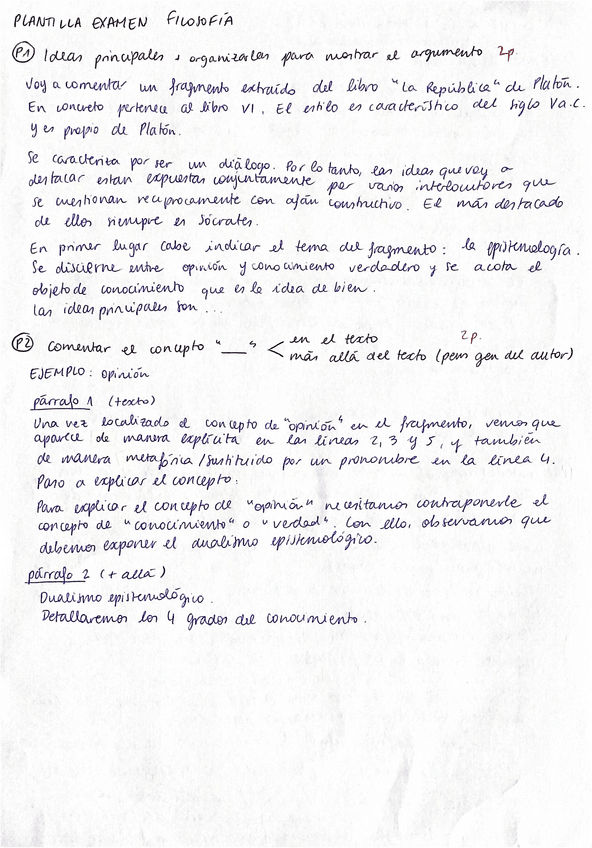 PLANTILLA EXAMEN FILOSOFÍA
P1 Ideas principales + organizarlas para mostrar el argumento 2p.
Voy a comentar un fragmento extraído del libro "La República" de Platón.
En concreto pertenece al libro VI. El estilo es característico del siglo V a.C.
y es propio de Platón.
Se caracteriza por ser un diálogo. Por lo tanto, las ideas que voy a
destacar estan expuestas conjuntamente por varios interlocutores que
se cuestionan recíprocamente con afán constructivo. El más destacado
de ellos siempre es Sócrates.
En primer lugar cabe indicar el tema del fragmento: la epistemología.
Se discierne entre opinión y conocimiento verdadero y se acota el
objeto de conocimiento que es la idea de bien.
Las ideas principales son ...
P2 Comentar el concepto "___" < en el texto 2p.
más allá del texto (pens gen del autor)
EJEMPLO: opinión
párrafo 1 (texto)
Una vez localizado el concepto de "opinión" en el fragmento, vemos que
aparece de manera explícita en las líneas 2, 3 y 5, y también
de manera metafórica/sustituido por un pronombre en la línea 4.
Paso a explicar el concepto:
Para explicar el concepto de "opinión" necesitamos contraponerle el
concepto de "conocimiento" o "verdad". Con ello, observamos que
debemos exponer el dualismo epistemológico.
párrafo 2 (+ allá)
Dualismo epistemológico.
Detallaremos los 4 grados del conocimiento.